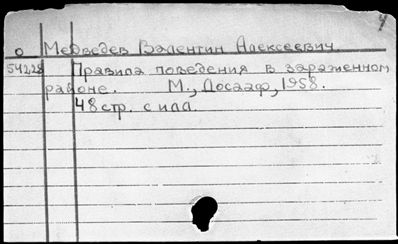 4
о Медведев Валентин Алексеевич.
54228 Правила поведения в зараженном
районе. М., Досааф, 1958.
48 стр. с илл.